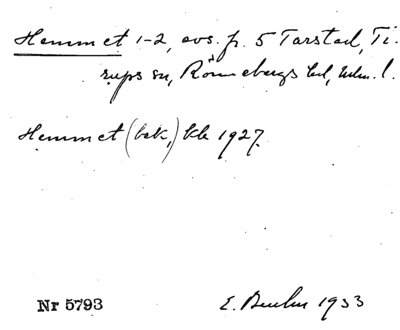 Hemmet 1-2, avs. fr. 5 Tarstad, Ti-
rups sn, Rönnebergs hd, Mlm. l.
Hemmet (bek.) kbr 1927.
Nr 5793
E. 1933